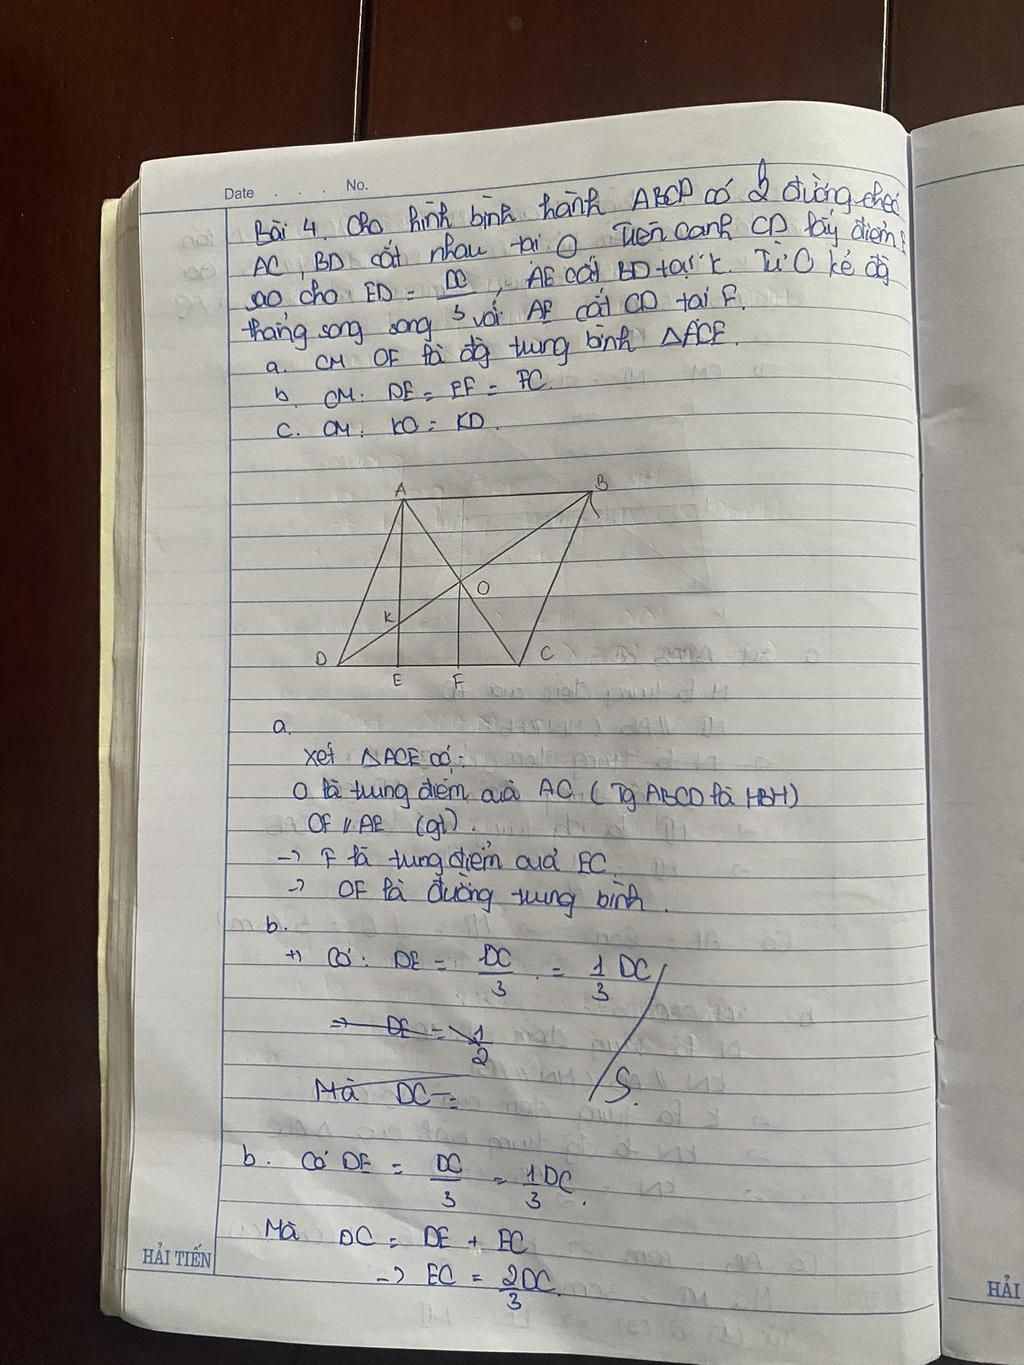 Date . . . No.
Bài 4. Cho hình bình hành ABCD có 2 đường chéo
AC, BD cắt nhau tại O. Trên cạnh CD lấy điểm E
sao cho ED = DC/3, AE cắt BD tại K. Từ O kẻ đg
thẳng song song với AE cắt CD tại F.
a. CM OF là đg trung bình ΔACE.
b. CM: DE = EF = FC.
c. CM: KO = KD.
A B
O
K
D E F C
a.
Xét ΔACE có:
O là trung điểm của AC (Tg ABCD là HBH)
OF // AE (gt).
→ F là trung điểm của EC.
→ OF là đường trung bình.
b.
+) Có: DE = DC/3 = 1/3 DC
⇒ DE = 1/2
Mà DC =
S.
b. Có DE = DC/3 = 1/3 DC.
Mà DC = DE + EC
→ EC = 2/3 DC.
HẢI TIẾN
HẢI